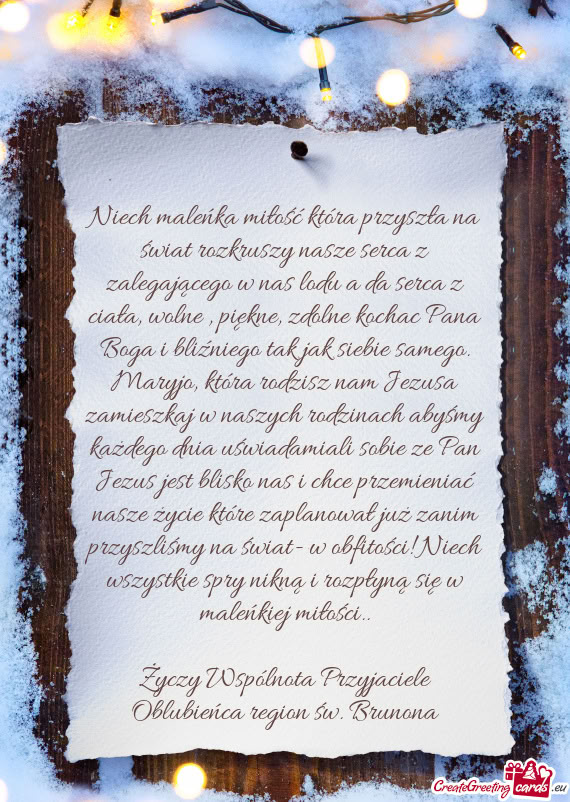 Niech maleńka miłość która przyszła na
świat rozkruszy nasze serca z
zalegającego w nas lodu a da serca z
ciała, wolne , piękne, zdolne kochac Pana
Boga i bliźniego tak jak siebie samego.
Maryjo, która rodzisz nam Jezusa
zamieszkaj w naszych rodzinach abyśmy
każdego dnia uświadamiali sobie ze Pan
Jezus jest blisko nas i chce przemieniać
nasze życie które zaplanował już zanim
przyszliśmy na świat- w obfitości! Niech
wszystkie spry nikną i rozpłyną się w
maleńkiej miłości..
Życzy Wspólnota Przyjaciele
Oblubieńca region św. Brunona
CreateGreetingcards.eu